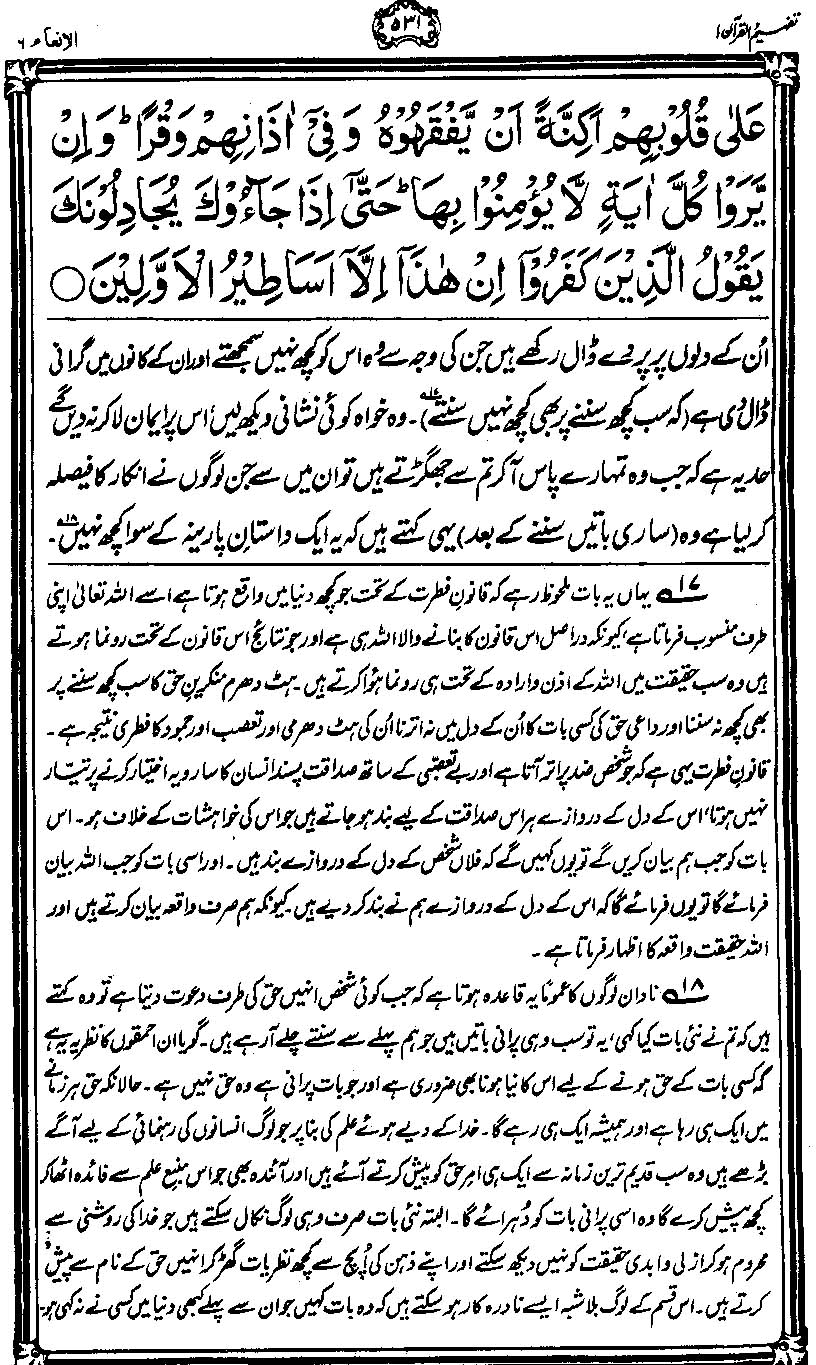 تفہیم القرآن ۱
۵۳۱
الانعام ۶
عَلٰى قُلُوْبِهِمْ اَكِنَّةً اَنْ يَّفْقَهُوْهُ وَفِيْٓ اٰذَانِهِمْ وَقْرًا ؕ وَاِنْ
يَّرَوْا كُلَّ اٰيَةٍ لَّا يُؤْمِنُوْا بِهَا ؕ حَتّٰٓى اِذَا جَآءُوْكَ يُجَادِلُوْنَكَ
يَقُوْلُ الَّذِيْنَ كَفَرُوْٓا اِنْ هٰذَآ اِلَّآ اَسَاطِيْرُ الْاَوَّلِيْنَ ○
اُن کے دلوں پر پردے ڈال رکھے ہیں جن کی وجہ سے وہ اس کو کچھ نہیں سمجھتے اور ان کے کانوں میں گرانی
ڈال دی ہے (کہ سب کچھ سننے پر بھی کچھ نہیں سنتے)۱۷۔ وہ خواہ کوئی نشانی دیکھ لیں، اس پر ایمان لا کر نہ دیں گے
حد یہ ہے کہ جب وہ تمہارے پاس آ کر تم سے جھگڑتے ہیں تو ان میں سے جن لوگوں نے انکار کا فیصلہ
کر لیا ہے وہ (ساری باتیں سننے کے بعد) یہی کہتے ہیں کہ یہ ایک داستانِ پارینہ کے سوا کچھ نہیں۱۸۔
۱۷ یہاں یہ بات ملحوظ رہے کہ قانونِ فطرت کے تحت جو کچھ دنیا میں واقع ہوتا ہے اسے اللہ تعالیٰ اپنی
طرف منسوب فرماتا ہے، کیونکہ دراصل اس قانون کا بنانے والا اللہ ہی ہے اور جو نتائج اس قانون کے تحت رونما ہوتے
ہیں وہ سب حقیقت میں اللہ کے اذن و ارادہ کے تحت ہی رونما ہوا کرتے ہیں۔ ہٹ دھرم منکرینِ حق کا سب کچھ سننے پر
بھی کچھ نہ سننا اور داعیِ حق کی کسی بات کا اُن کے دل میں نہ اترنا اُن کی ہٹ دھرمی اور تعصب اور جمود کا فطری نتیجہ ہے۔
قانونِ فطرت یہی ہے کہ جو شخص ضد پر اتر آتا ہے اور بے تعصبی کے ساتھ صداقت پسند انسان کا سا رویہ اختیار کرنے پر تیار
نہیں ہوتا، اس کے دل کے دروازے ہر اس صداقت کے لیے بند ہو جاتے ہیں جو اس کی خواہشات کے خلاف ہو۔ اس
بات کو جب ہم بیان کریں گے تو یوں کہیں گے کہ فلاں شخص کے دل کے دروازے بند ہیں۔ اور اسی بات کو جب اللہ بیان
فرمائے گا تو یوں فرمائے گا کہ اس کے دل کے دروازے ہم نے بند کر دیے ہیں۔ کیونکہ ہم صرف واقعہ بیان کرتے ہیں اور
اللہ حقیقت واقعہ کا اظہار فرماتا ہے۔
۱۸ نادان لوگوں کا عموماً یہ قاعدہ ہوتا ہے کہ جب کوئی شخص انہیں حق کی طرف دعوت دیتا ہے تو وہ کہتے
ہیں کہ تم نے نئی بات کیا کہی، یہ تو سب وہی پرانی باتیں ہیں جو ہم پہلے سے سنتے چلے آ رہے ہیں۔ گویا ان احمقوں کا نظریہ یہ ہے
کہ کسی بات کے حق ہونے کے لیے اس کا نیا ہونا بھی ضروری ہے اور جو بات پرانی ہے وہ حق نہیں ہے۔ حالانکہ حق ہر زمانے
میں ایک ہی رہا ہے اور ہمیشہ ایک ہی رہے گا۔ خدا کے دیے ہوئے علم کی بنا پر جو لوگ انسانوں کی رہنمائی کے لیے آگے
بڑھے ہیں وہ سب قدیم ترین زمانہ سے ایک ہی امرِ حق کو پیش کرتے آئے ہیں اور آئندہ بھی جو اس منبعِ علم سے فائدہ اٹھا کر
کچھ پیش کرے گا وہ اسی پرانی بات کو دُہرائے گا۔ البتہ نئی بات صرف وہی لوگ نکال سکتے ہیں جو خدا کی روشنی سے
محروم ہو کر ازلی و ابدی حقیقت کو نہیں دیکھ سکتے اور اپنے ذہن کی اُپچ سے کچھ نظریات گھڑ کر انہیں حق کے نام سے پیش
کرتے ہیں۔ اس قسم کے لوگ بلاشبہ ایسے نادرہ کار ہو سکتے ہیں کہ وہ بات کہیں جو ان سے پہلے کبھی دنیا میں کسی نے نہ کہی ہو۔